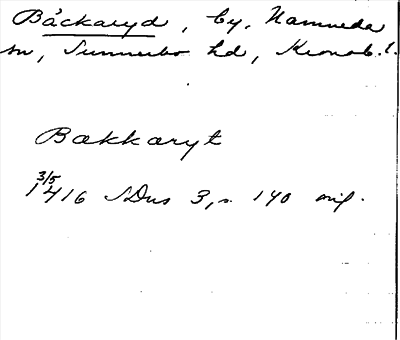 Bäckaryd, by, Hamneda
sn, Sunnerbo hd, Kronob. l.
Bækkaryt
3/5
1416 SDns 3, s. 140 mif.